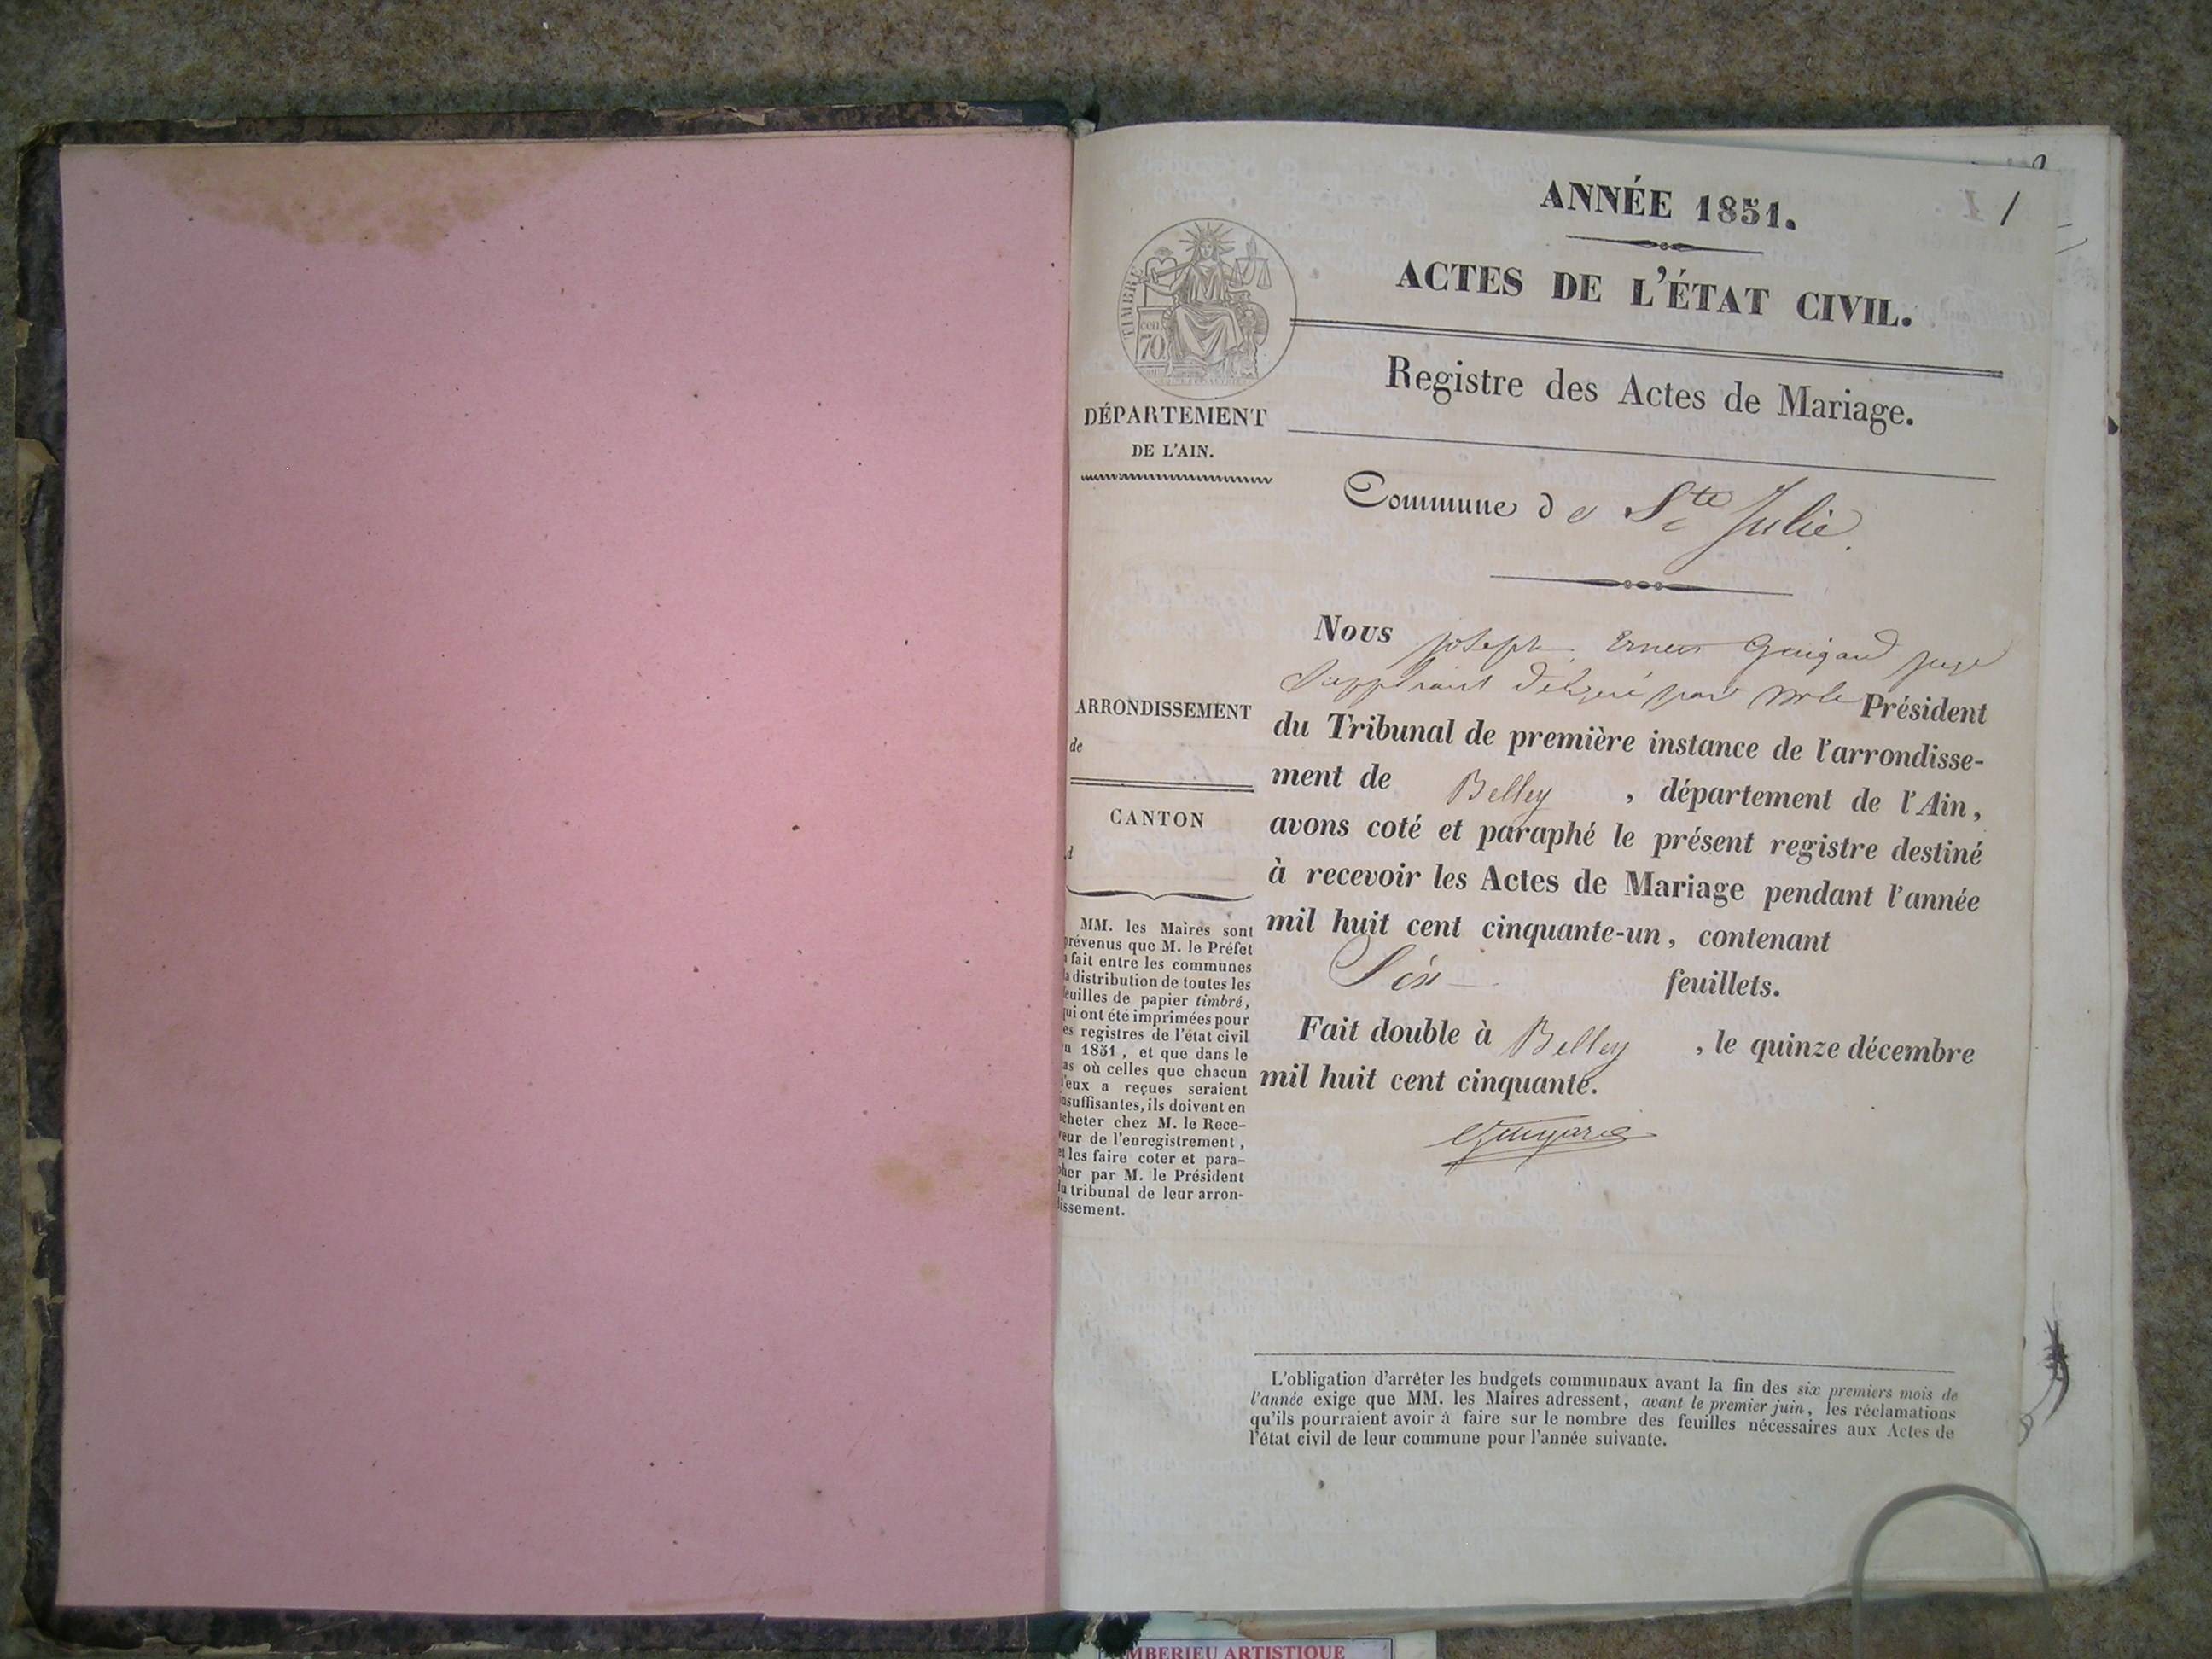 1
ANNÉE 1851.
ACTES DE L'ÉTAT CIVIL.
TIMBRE
cen.
70
Registre des Actes de Mariage.
DÉPARTEMENT
DE L'AIN.
Commune de Ste Julie.
Nous Joseph Ernest Guigard juge
Suppléant délégué par Mr le Président
du Tribunal de première instance de l'arrondisse-
ment de Belley, département de l'Ain,
avons coté et paraphé le présent registre destiné
à recevoir les Actes de Mariage pendant l'année
mil huit cent cinquante-un, contenant
Six feuillets.
Fait double à Belley, le quinze décembre
mil huit cent cinquante.
ARRONDISSEMENT
de
CANTON
d
MM. les Maires sont
prévenus que M. le Préfet
a fait entre les communes
la distribution de toutes les
feuilles de papier timbré,
qui ont été imprimées pour
les registres de l'état civil
en 1851, et que dans le
cas où celles que chacun
d'eux a reçues seraient
insuffisantes, ils doivent en
acheter chez M. le Rece-
veur de l'enregistrement,
et les faire coter et para-
pher par M. le Président
du tribunal de leur arron-
dissement.
L'obligation d'arrêter les budgets communaux avant la fin des six premiers mois de
l'année exige que MM. les Maires adressent, avant le premier juin, les réclamations
qu'ils pourraient avoir à faire sur le nombre des feuilles nécessaires aux Actes de
l'état civil de leur commune pour l'année suivante.
MBERIEU ARTISTIQUE